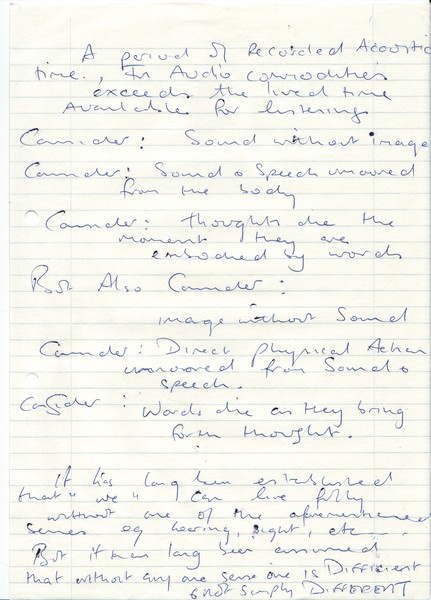 A period of Recorded Acoustic
time., In Audio comodities
exceeds the lived time
Available for listening
Consider: Sound without image
Consider: Sound & Speech unmoored
from the body
Consider: thoughts die the
moment they are
embodied by words
But Also Consider:
image without Sound
Consider: Direct physical Action
unmoored from Sound &
speech.
Consider: Words die as they bring
forth thought.
It has long been established
that "we" can live fully
without one of the aforementioned
senses eg hearing, sight, etc
But it has long been assumed
that without any one sense one is DIFFICIENT
& not simply DIFFERENT